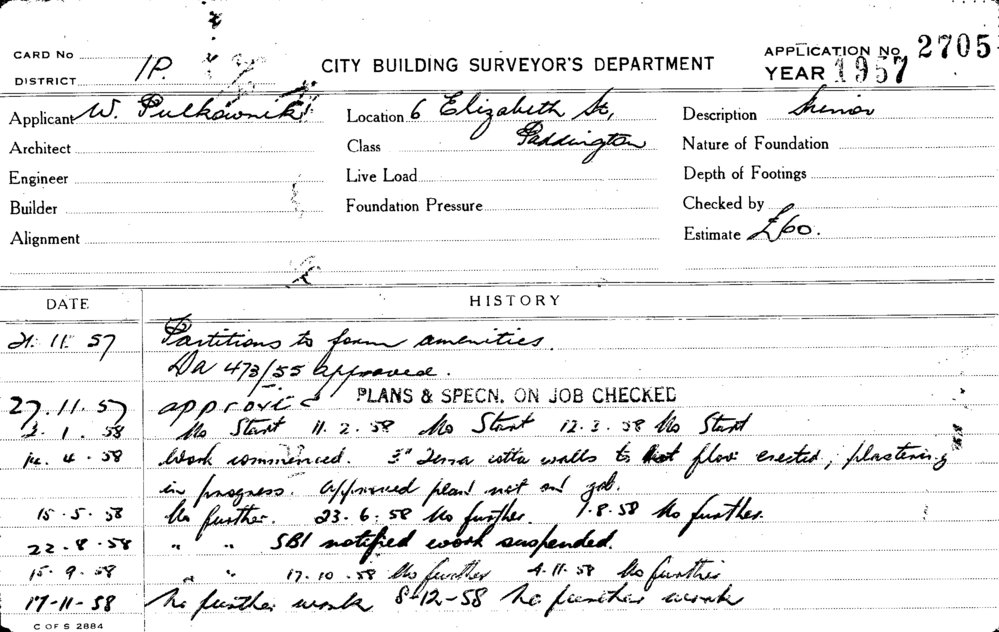 CARD No
DISTRICT 1P.
CITY BUILDING SURVEYOR'S DEPARTMENT
APPLICATION No 2705
YEAR 1957
Applicant W. Pulkownik
Location 6 Elizabeth St,
Paddington
Description
Architect
Class
Nature of Foundation
Engineer
Live Load
Depth of Footings
Builder
Foundation Pressure
Checked by
Alignment
Estimate £60.
DATE HISTORY
21. 11. 57 Partitions to form amenities.
Da 473/55 approved.
27. 11. 57 approved PLANS & SPECN. ON JOB CHECKED
2. 1. 58 No Start 11. 2. 58 No Start 12. 3. 58 No Start
14. 4. 58 Work commenced. 3" Terra cotta walls to floor erected, plastering
in progress. Approved plan not on job.
15. 5. 58 No further. 23. 6. 58 No further. 1. 8. 58 No further.
22. 8. 58 " " SBI notified work suspended.
15. 9. 58 " " 17. 10. 58 No further 4. 11. 58 No further
17-11-58 No further work 8-12-58 No further work
C OF S 2884